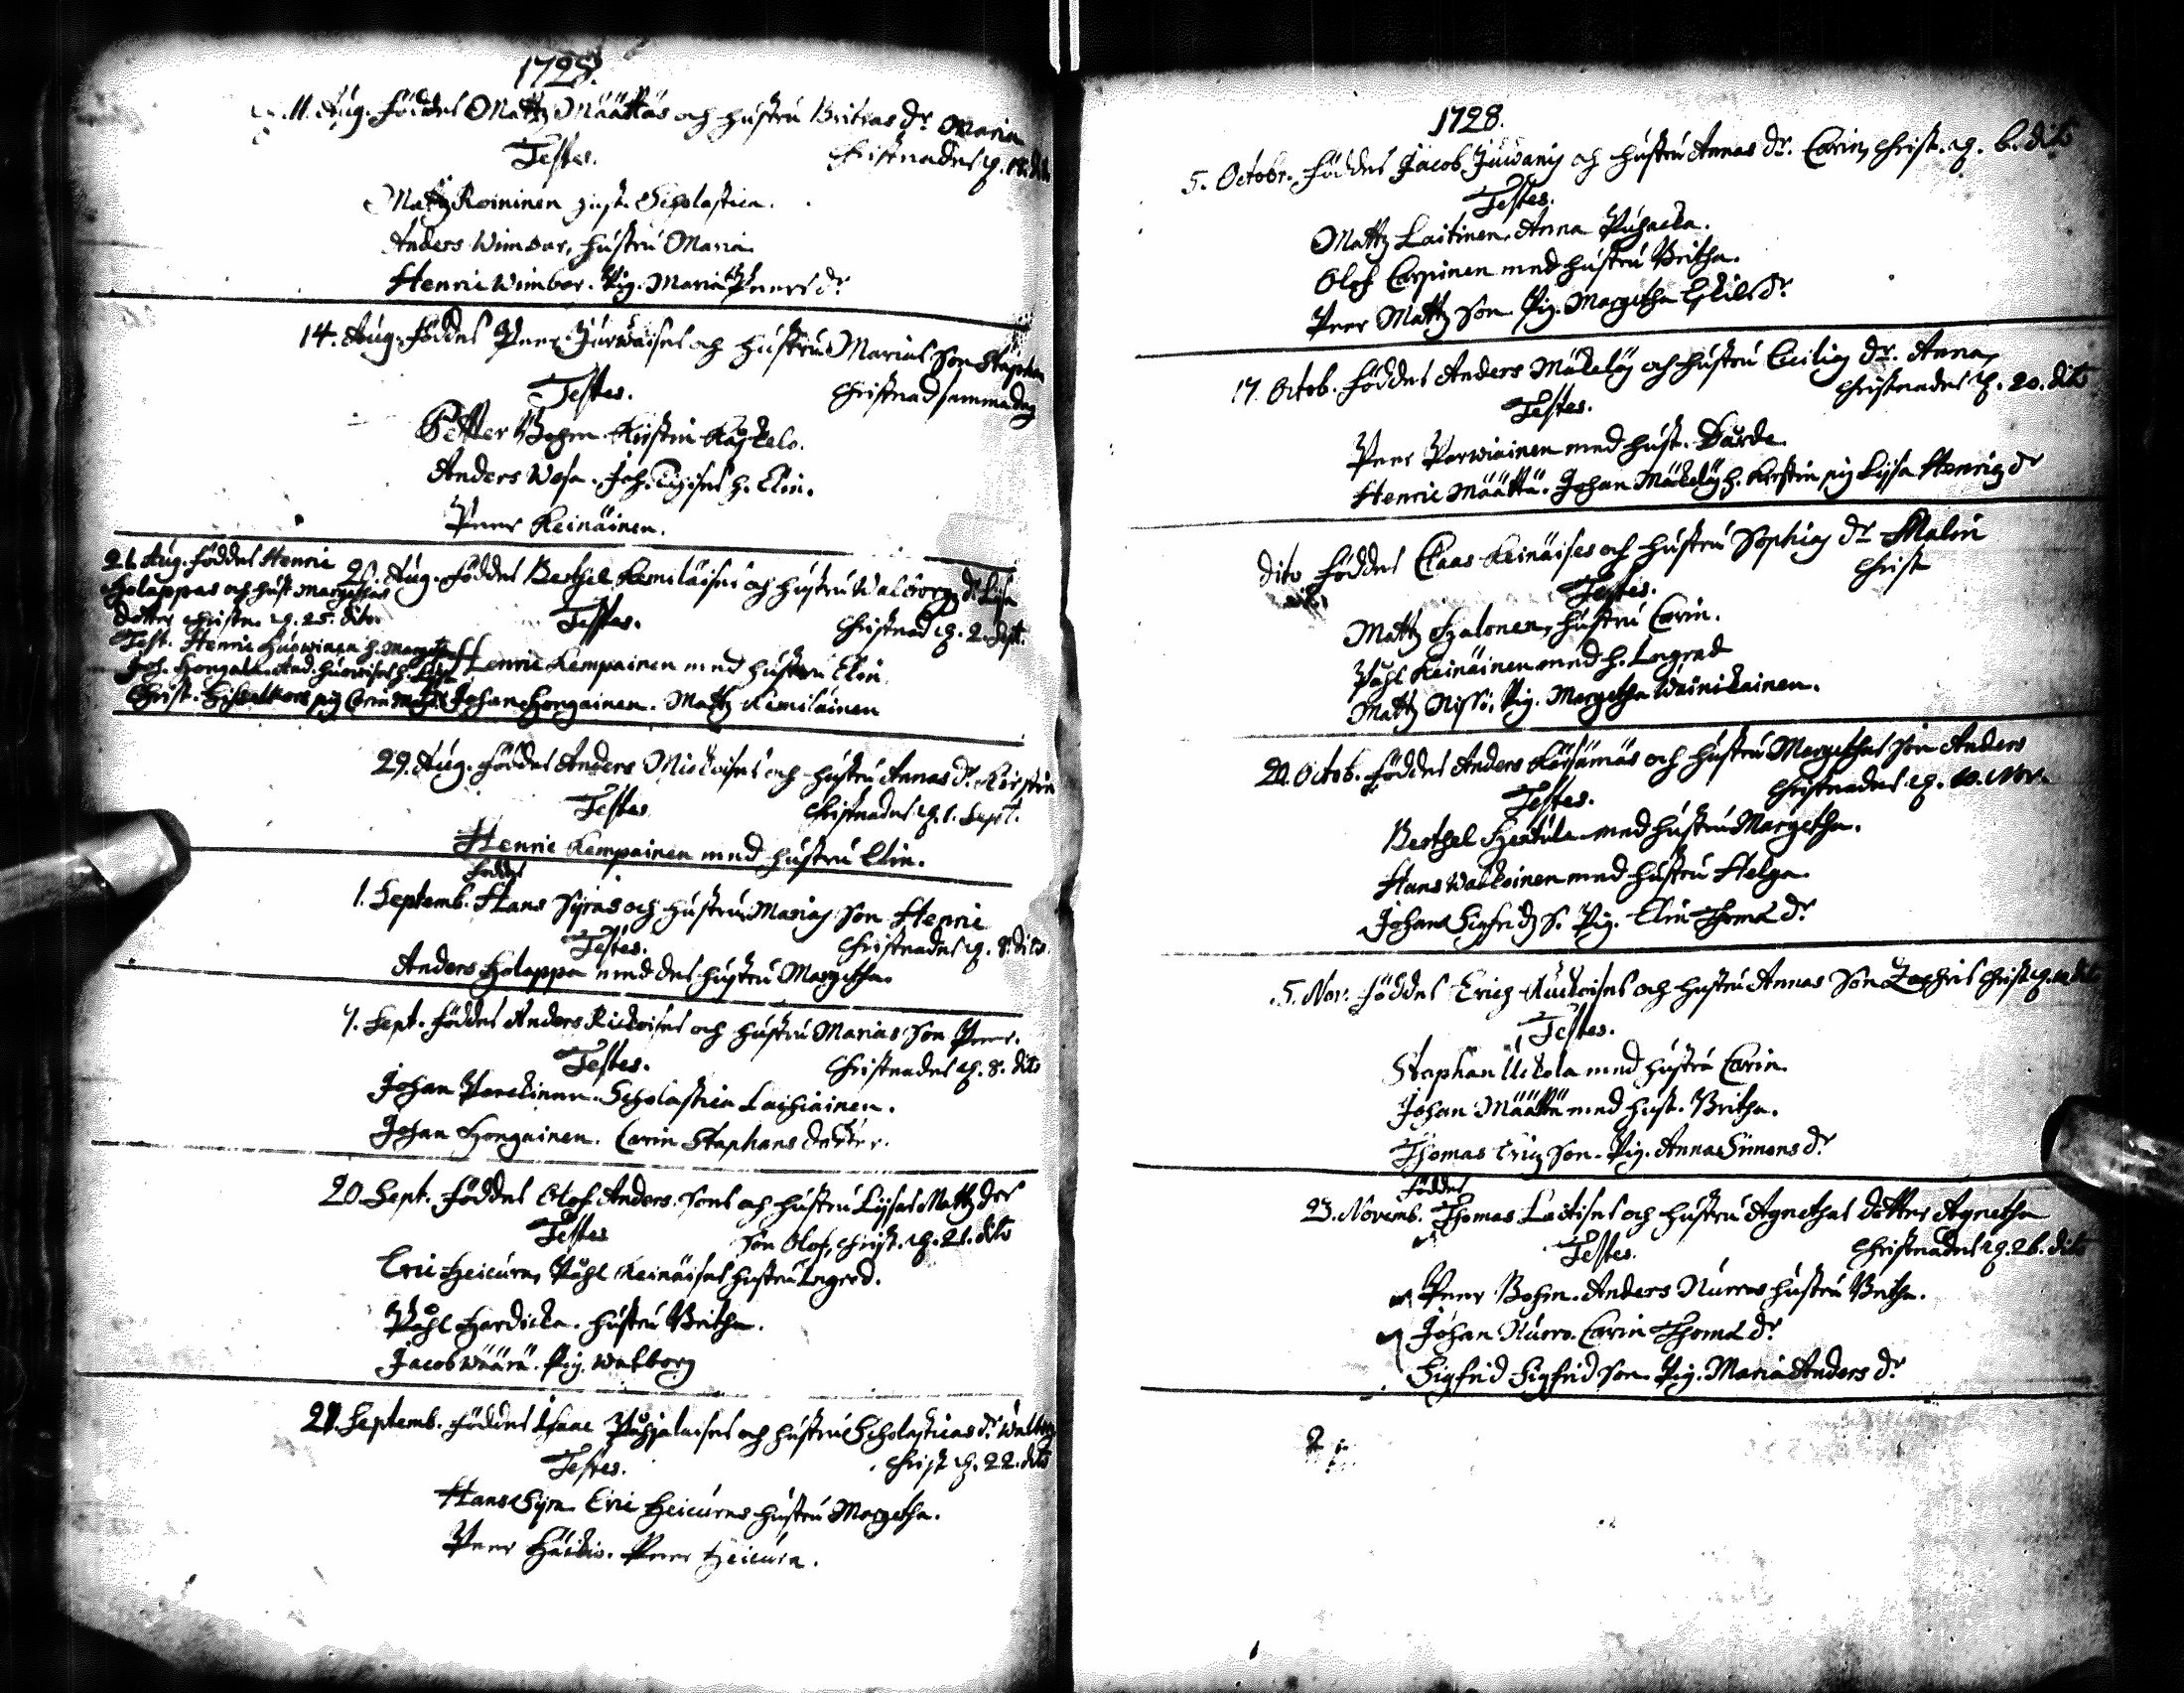 1728.
11. Aug. föddes Mattz Määttäs och hustru Britas dr. Maria
Testes. Christnades d. 18. dito
Mattz Roininen hust. Scholastica.
Anders Wimbar, hustru Maria
Henric Wimbar. Pig. Maria Peersdr.
14. Aug. föddes Peer Jurwaises och hustru Marias Son Staphan
Testes. Christnad samma dag
Petter Bohm. Kirstin Kåskelo.
Anders Wesa. Joh. h. Elin.
Peer Keinäinen.
21. Aug. föddes Henric
Holappas och hust Margethas
dotter christn. d. 25. dito
Test. Henric Huowinen h. Margetha
Joh. Hongain. And. Huowises h.
Christ. pig Carin
27. Aug. föddes Berthel Kemiläises och hustru Walborgz dr. Lisa
Testes. Christnad d. 2. Sept.
Henric Kempainen med hustru Elin
Johan Hongainen. Mattz Kemiläinen
29. Aug. föddes Anders Mickoises och hustru Annas dr. Kirstin
Testes Christnades d. 1. Sept.
Henric Kempainen med hustru Elin.
föddes
1. Septemb. Hans Syräs och hustrus Marias Son Henric
Testes. Christnades d. 8. dito.
Anders Holappa med des hustru Margetha.
7. Sept. föddes Anders Rickoises och hustru Marias Son Peer.
Testes. Christnades d. 8. dito
Johan Parckinen. Scholastica Laihiainen.
Johan Hongainen. Carin Staphans dotter.
20. Sept. föddes Olof Anders. Sons och hustru Lijsas Mattz drs
Testes Son Olof, Christ. d. 21. dito
Eric Heicura, Påhl Keinäises hustru Ingred.
Påhl Hardicka. hustru Britha.
Jacob Wäärä. Pig. Walborg
21. Septemb. föddes Isaac Påhjalaises och hustru Scholasticas dr. Walborg
Testes. Christ d. 22. dito
Hans Syra Eric Heicuras hustru Margetha.
Peer Häikiö. Peer Heicura.
1728.
5. Octobr. föddes Jacob Juwanis och hustru Annas dr. Carin, Christ. d. 6. dito
Testes.
Mattz Laitinen, Anna Puhacka.
Olof Carpinen med hustru Britha.
Peer Mattz Son Pig. Margetha Eskilsdr
17. Octob. föddes Anders Mäkeläs och hustru Cicilias dr. Anna,
Testes. Christnades d. 20. dito
Peer Parwiainen med hust. Dårde
Henric Määttä. Johan Mäkeläs h. Kirstin pig Lijsa Henrigz dr
dito föddes Claas Keinäises och hustru Sophias dr Malin
Testes. Christ
Mattz Halonen, hustru Carin.
Påhl Keinäinen med h. Ingrad
Mattz Nissi, Pig. Margetha Wainikainen.
20. Octob. föddes Anders Körsämäs och hustru Margethas Son Anders
Testes. Christnades d. 10. Nov.
Berthel Heikula med hustru Margetha.
Hans Walckoinen med hustru Helga
Johan Sigfridz S. Pig. Elin Thomæ dr
5. Nov. föddes Erich Kuckoises och hustru Annas Son Zachris Christ. d. 10 dito
Testes.
Staphan Uckola med hustru Carin
Johan Määttä med hust. Britha.
Thomas Erigz Son. Pig. Anna Simons dr
föddes
23. Novemb. Thomas Laitises och hustru Agnethas dotter Agnetha
Testes. Christnades d. 26. dito
Peer Bohm. Anders Nurros hustru Britha.
Johan Nurro. Carin Thomæ dr
Sigfrid Sigfrid Son. Pig. Maria Anders dr